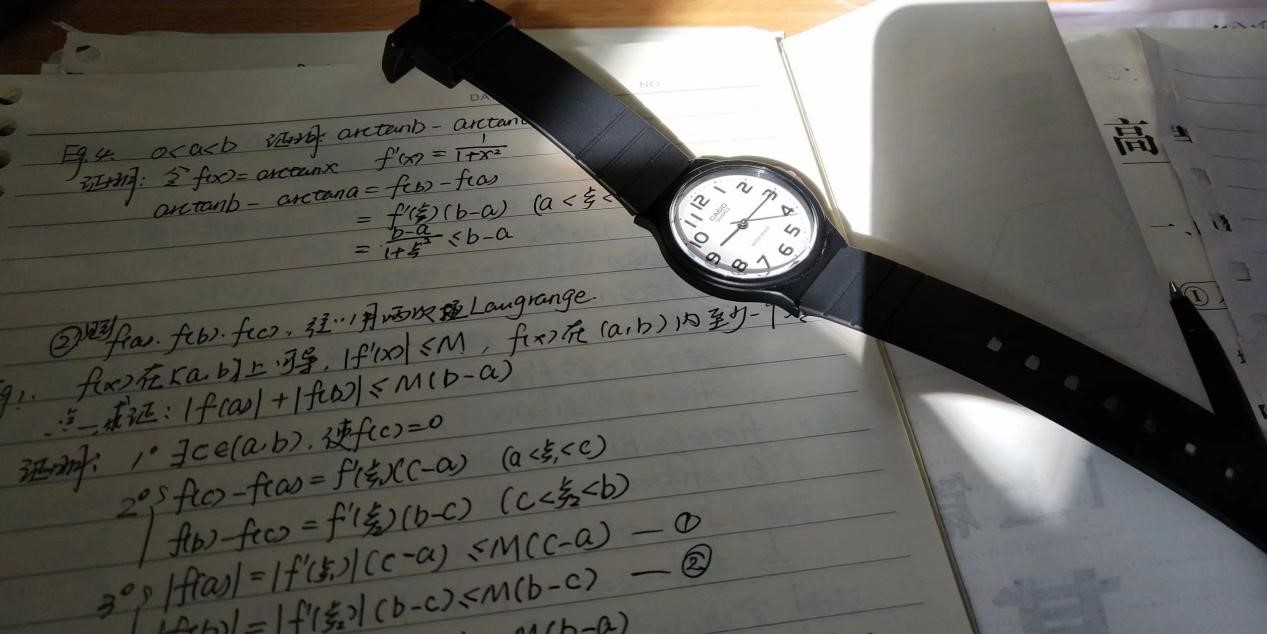 DA
NO.
例4. 0<a<b 证明: arctanb - arctana
证明: 令 f(x) = arctanx f'(x) = 1/(1+x²)
arctanb - arctana = f(b) - f(a)
= f'(ξ)(b-a) (a<ξ<
= (b-a)/(1+ξ²) ≤ b-a
② 见到 f(a). f(b). f(c), 往… 用两次 Laugrange.
例1. f(x)在[a,b]上可导, |f'(x)| ≤ M, f(x)在(a,b)内至少一个
点. 求证: |f(a)| + |f(b)| ≤ M(b-a)
证明: 1° ∃c∈(a,b), 使f(c)=0
2° { f(c)-f(a) = f'(ξ₁)(c-a) (a<ξ₁<c)
f(b)-f(c) = f'(ξ₂)(b-c) (c<ξ₂<b)
3° { |f(a)| = |f'(ξ₁)|(c-a) ≤ M(c-a) — ①
|f(b)| = |f'(ξ₂)|(b-c) ≤ M(b-c) — ②
M(b-a)
12 1 2 3 4 5 6 7 8 9 10 11
CASIO
QUARTZ
高
一、
①